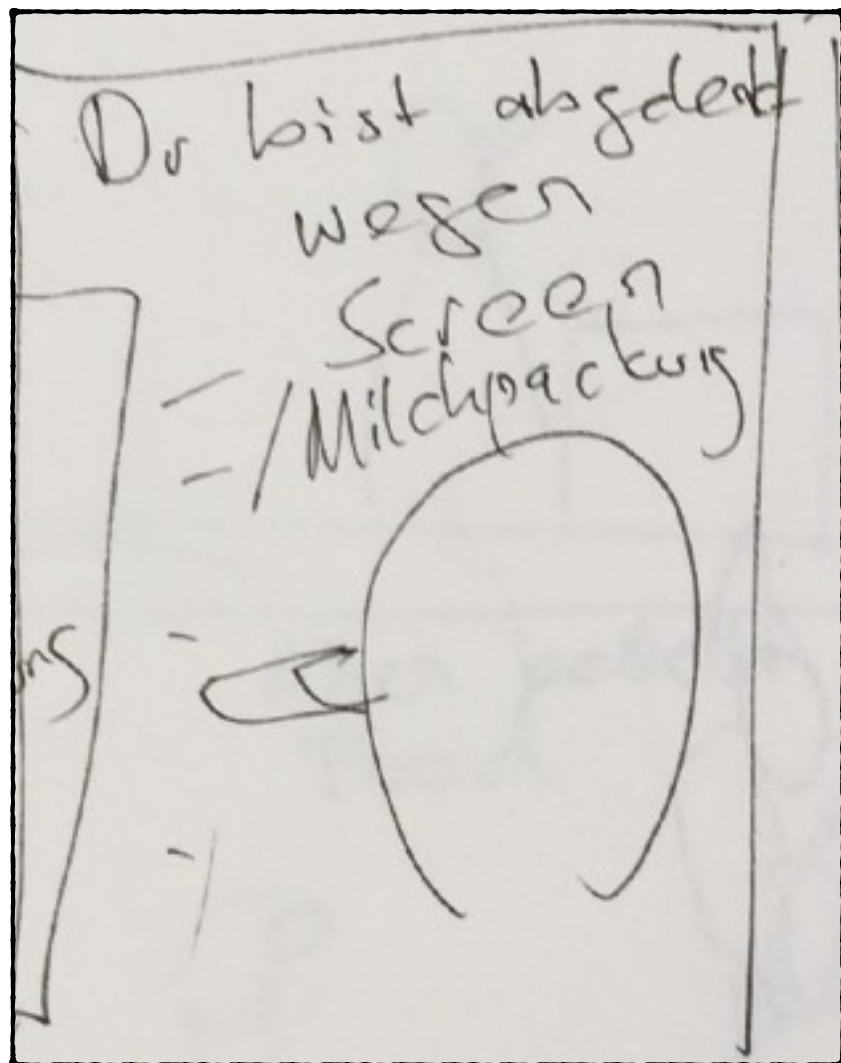 Du bist abgdenkt
wegen
Screen
/Milchpackung
ung